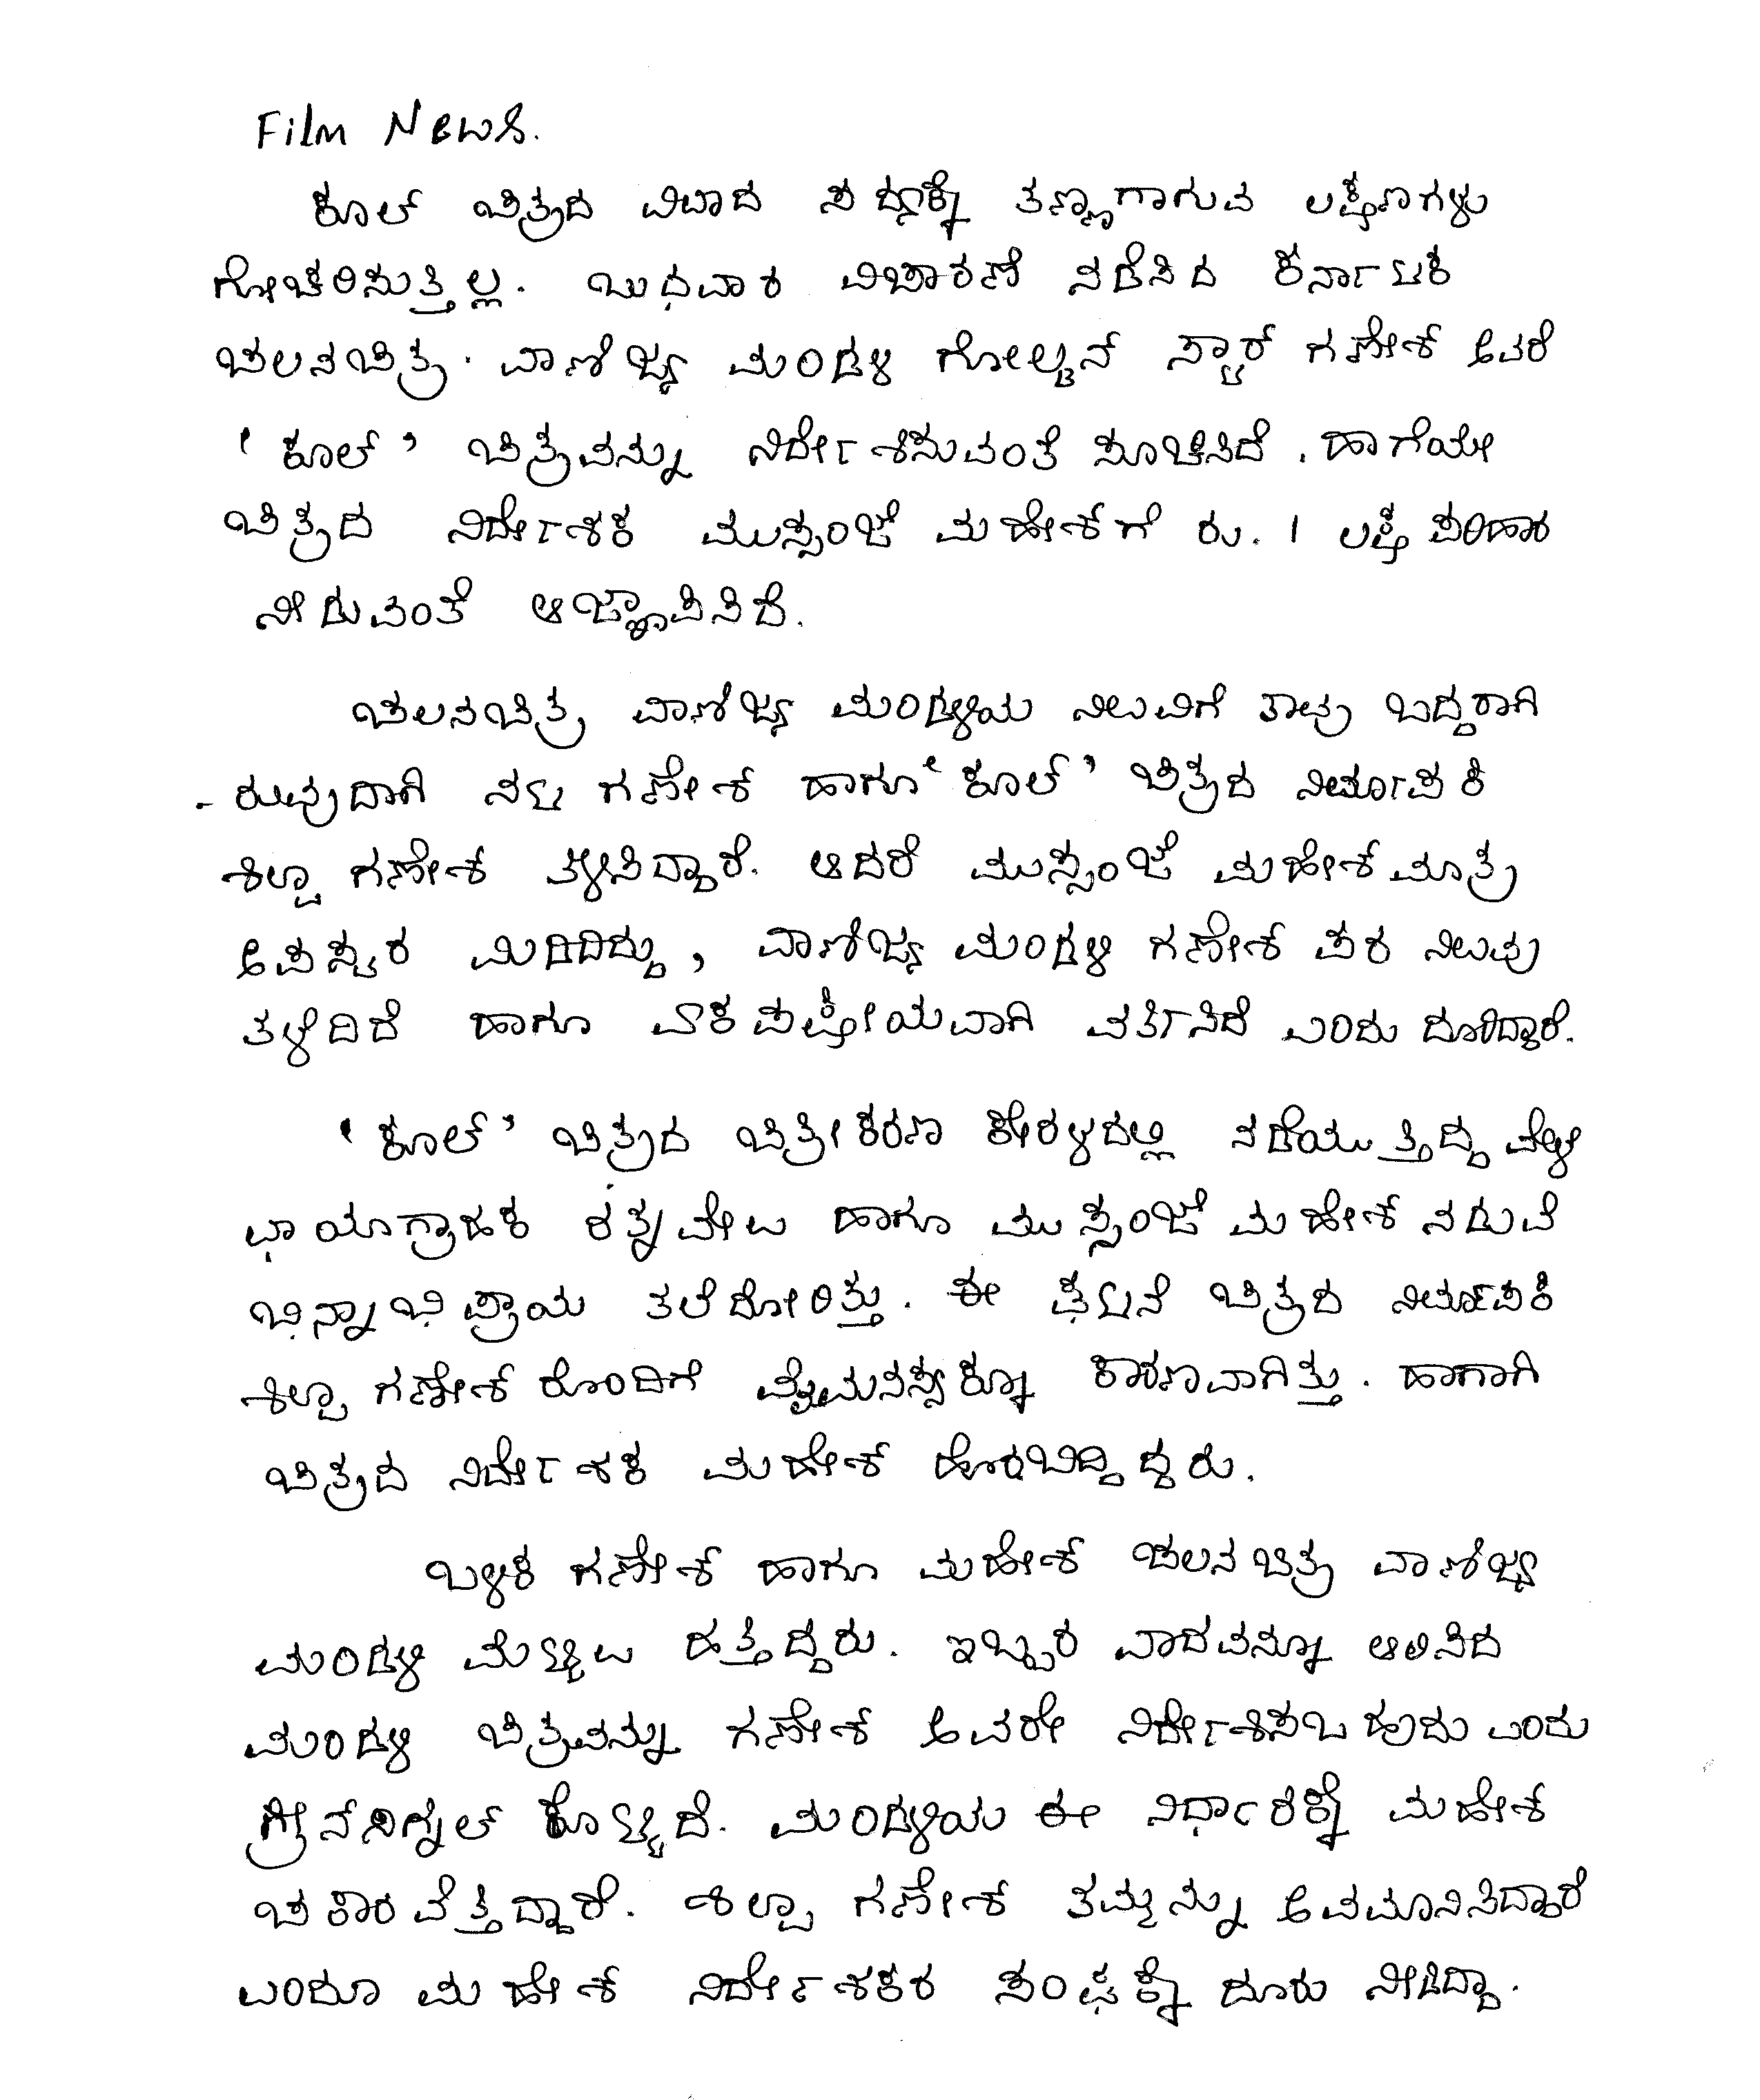 Film News.
ಕೂಲ್ ಚಿತ್ರದ ವಿವಾದ ಸದ್ಯಕ್ಕೆ ತಣ್ಣಗಾಗುವ ಲಕ್ಷಣಗಳು
ಗೋಚರಿಸುತ್ತಿಲ್ಲ. ಬುಧವಾರ ವಿಚಾರಣೆ ನಡೆಸಿದ ಕರ್ನಾಟಕ
ಚಲನಚಿತ್ರ ವಾಣಿಜ್ಯ ಮಂಡಳಿ ಗೋಲ್ಡನ್ ಸ್ಟಾರ್ ಗಣೇಶ್ ಅವರೆ
‘ ಕೂಲ್ ’ ಚಿತ್ರವನ್ನು ನಿರ್ದೇಶಿಸುವಂತೆ ಸೂಚಿಸಿದೆ . ಹಾಗೆಯೇ
ಚಿತ್ರದ ನಿರ್ದೇಶಕ ಮುಸ್ಸಂಜೆ ಮಹೇಶ್‌ಗೆ ರು. 1 ಲಕ್ಷ ಪರಿಹಾರ
ನೀಡುವಂತೆ ಆಜ್ಞಾಪಿಸಿದೆ.
ಚಲನಚಿತ್ರ ವಾಣಿಜ್ಯ ಮಂಡಳಿಯ ನಿಲುವಿಗೆ ತಾವು ಬದ್ಧರಾಗಿ
- ರುವುದಾಗಿ ನಟ ಗಣೇಶ್ ಹಾಗೂ ‘ ಕೂಲ್ ’ ಚಿತ್ರದ ನಿರ್ಮಾಪಕಿ
ಶಿಲ್ಪಾ ಗಣೇಶ್ ತಿಳಿಸಿದ್ದಾರೆ. ಆದರೆ ಮುಸ್ಸಂಜೆ ಮಹೇಶ್ ಮಾತ್ರ
ಅಪಸ್ವರ ಮಿಡಿದಿದ್ದು , ವಾಣಿಜ್ಯ ಮಂಡಳಿ ಗಣೇಶ್ ಪರ ನಿಲುವು
ತಳೆದಿದೆ ಹಾಗೂ ಏಕಪಕ್ಷೀಯವಾಗಿ ವರ್ತಿಸಿದೆ ಎಂದು ದೂರಿದ್ದಾರೆ.
‘ ಕೂಲ್ ’ ಚಿತ್ರದ ಚಿತ್ರೀಕರಣ ಕೇರಳದಲ್ಲಿ ನಡೆಯುತ್ತಿದ್ದ ವೇಳೆ
ಛಾಯಾಗ್ರಾಹಕ ರತ್ನವೇಲು ಹಾಗೂ ಮುಸ್ಸಂಜೆ ಮಹೇಶ್ ನಡುವೆ
ಭಿನ್ನಾಭಿಪ್ರಾಯ ತಲೆದೋರಿತ್ತು . ಈ ಘಟನೆ ಚಿತ್ರದ ನಿರ್ಮಾಪಕಿ
ಶಿಲ್ಪಾ ಗಣೇಶ್ ರೊಂದಿಗೆ ವೈಮನಸ್ಸಕ್ಕೂ ಕಾರಣವಾಗಿತ್ತು . ಹಾಗಾಗಿ
ಚಿತ್ರದ ನಿರ್ದೇಶಕ ಮಹೇಶ್ ಹೊರಬಿದ್ದಿದ್ದರು.
ಬಳಿಕ ಗಣೇಶ್ ಹಾಗೂ ಮಹೇಶ್ ಚಲನಚಿತ್ರ ವಾಣಿಜ್ಯ
ಮಂಡಳಿ ಮೆಟ್ಟಿಲು ಹತ್ತಿದ್ದರು. ಇಬ್ಬರ ವಾದವನ್ನೂ ಆಲಿಸಿದ
ಮಂಡಳಿ ಚಿತ್ರವನ್ನು ಗಣೇಶ್ ಅವರೇ ನಿರ್ದೇಶಿಸಬಹುದು ಎಂದು
ಗ್ರೀನ್‌ಸಿಗ್ನಲ್ ಕೊಟ್ಟಿದೆ. ಮಂಡಳಿಯ ಈ ನಿರ್ಧಾರಕ್ಕೆ ಮಹೇಶ್
ಚಕಾರವೆತ್ತಿದ್ದಾರೆ. ಶಿಲ್ಪಾ ಗಣೇಶ್ ತಮ್ಮನ್ನು ಅವಮಾನಿಸಿದ್ದಾರೆ
ಎಂದೂ ಮಹೇಶ್ ನಿರ್ದೇಶಕರ ಸಂಘಕ್ಕೆ ದೂರು ನೀಡಿದ್ದಾ.